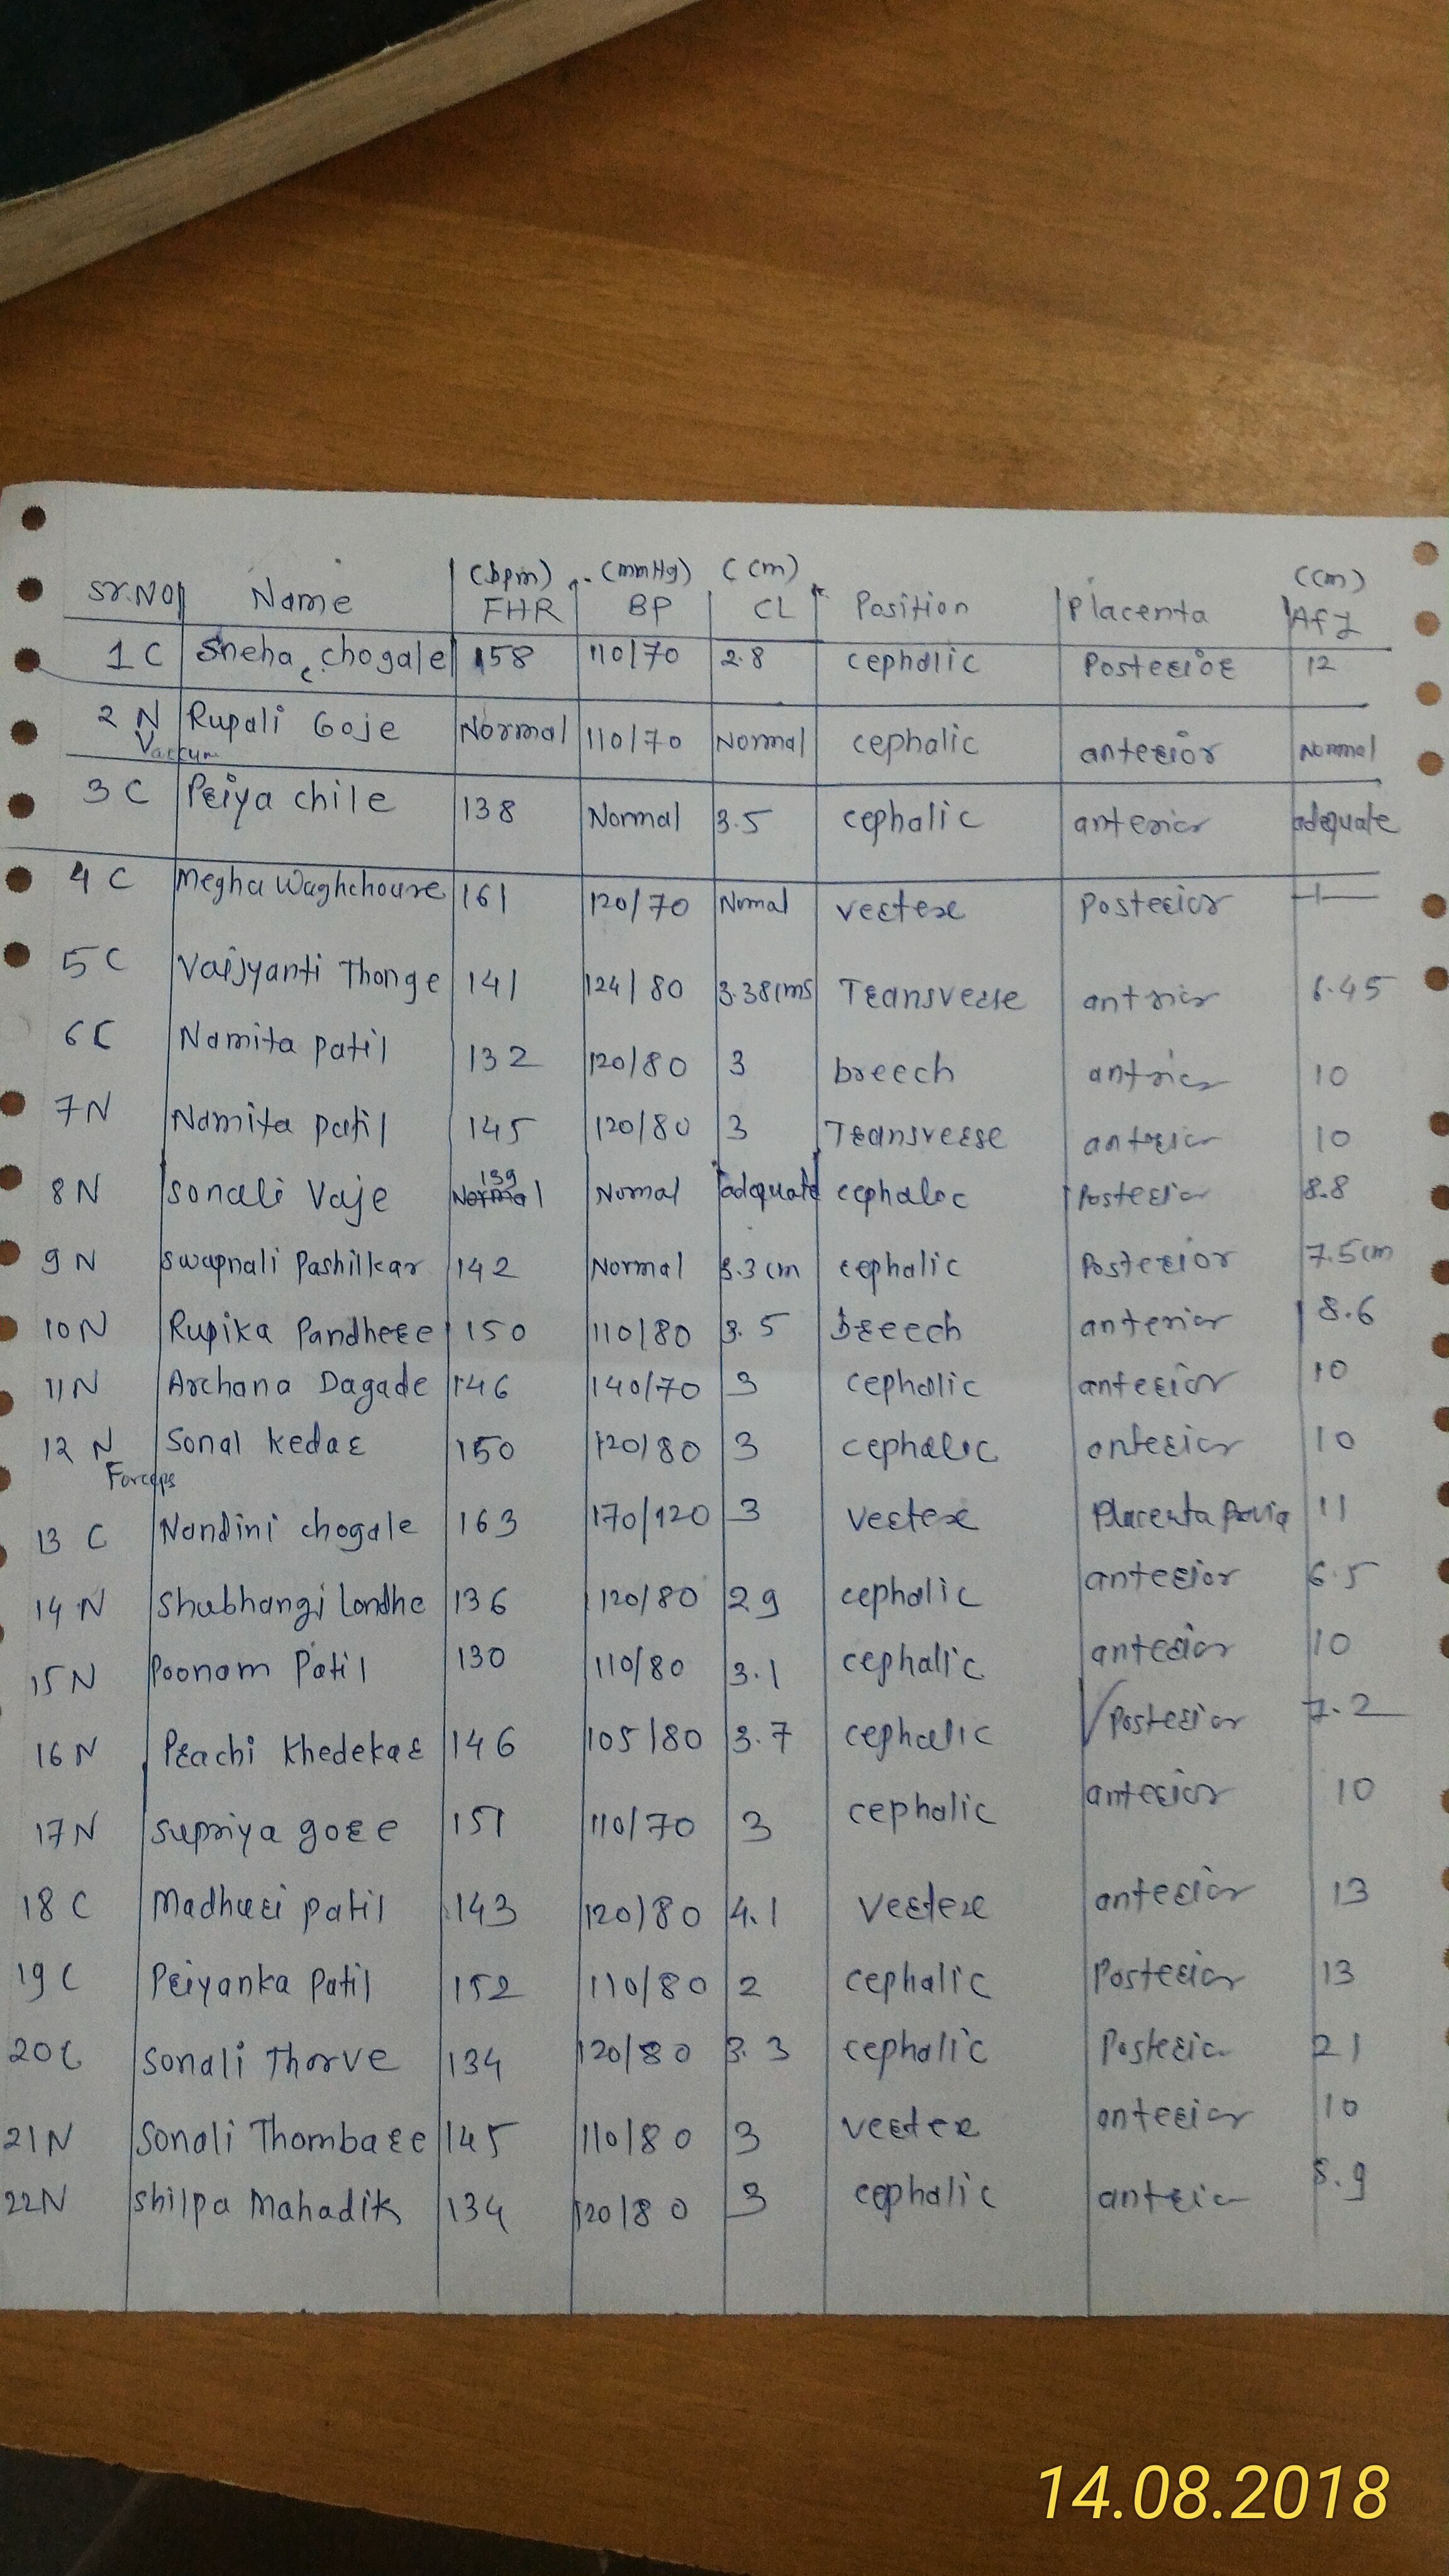 (bpm) (mmHg) (cm) (cm)
Sr.NO Name FHR BP CL Position Placenta AFI
1 C Sneha chogale 158 110/70 2.8 cephalic Posterior 12
2 N Rupali Goje Normal 110/70 Normal cephalic anterior Normal
Vaccum
3 C Priya chile 138 Normal 3.5 cephalic anterior adequate
4 C Megha Waghchoure 161 120/70 Nomal vertex Posterior
5 C Vaijyanti Thonge 141 124/80 3.38cms Transverse antrior 6.45
6 C Namita patil 132 120/80 3 breech antrior 10
7 N Namita patil 145 120/80 3 Transverse anterior 10
139
8 N Sonali Vaje Normal Nomal adequate cephalic Posterior 8.8
9 N Swapnali Pashilkar 142 Normal 3.3 cm cephalic Posterior 7.5 cm
10 N Rupika Pandhere 150 110/80 3.5 breech anterior 8.6
11 N Archana Dagade 146 140/70 3 cephalic anterior 10
12 N Sonal Kedar 150 120/80 3 cephalic anterior 10
Forceps
13 C Nandini chogale 163 170/120 3 vertex Placenta Previa 11
14 N Shubhangi Londhe 136 120/80 2.9 cephalic anterior 6.5
15 N Poonam Patil 130 110/80 3.1 cephalic anterior 10
16 N Prachi Khedekar 146 105/80 3.7 cephalic Posterior 7.2
17 N Supriya gore 151 110/70 3 cephalic anterior 10
18 C Madhuri patil 143 120/80 4.1 Vertex anterior 13
19 C Priyanka Patil 152 110/80 2 cephalic Posterior 13
20 C Sonali Thorve 134 120/80 3.3 cephalic Posterior 21
21 N Sonali Thombare 145 110/80 3 vertex anterior 10
22 N Shilpa Mahadik 134 120/80 3 cephalic anterior
14.08.2018